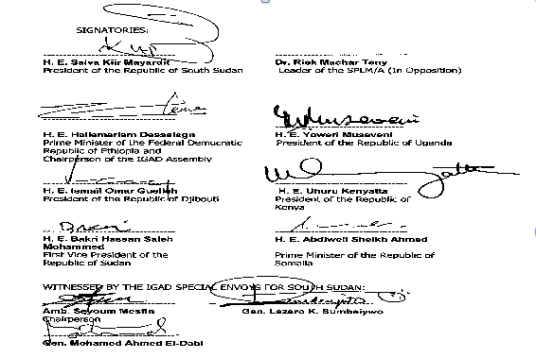 SIGNATORIES:
H. E. Salva Kiir Mayardit
President of the Republic of South Sudan
Dr. Riek Machar Teny
Leader of the SPLM/A (In Opposition)
H. E. Hailemariam Dessalegn
Prime Minister of the Federal Democratic
Republic of Ethiopia and
Chairperson of the IGAD Assembly
H. E. Yoweri Museveni
President of the Republic of Uganda
H. E. Ismail Omar Guelleh
President of the Republic of Djibouti
H. E. Uhuru Kenyatta
President of the Republic of
Kenya
H. E. Bakri Hassan Saleh
Mohammed
First Vice President of the
Republic of Sudan
H. E. Abdiweli Sheikh Ahmed
Prime Minister of the Republic of
Somalia
WITNESSED BY THE IGAD SPECIAL ENVOYS FOR SOUTH SUDAN:
Amb. Seyoum Mesfin
Chairperson
Gen. Lazaro K. Sumbeiywo
Gen. Mohamed Ahmed El-Dabi